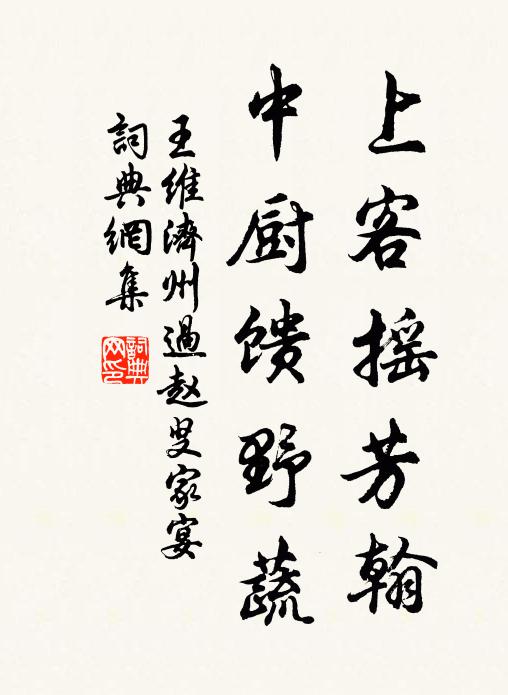 上客摇芳翰
中厨馈野蔬
王维濟州過赵叟家宴
詞典網集
詞典网印